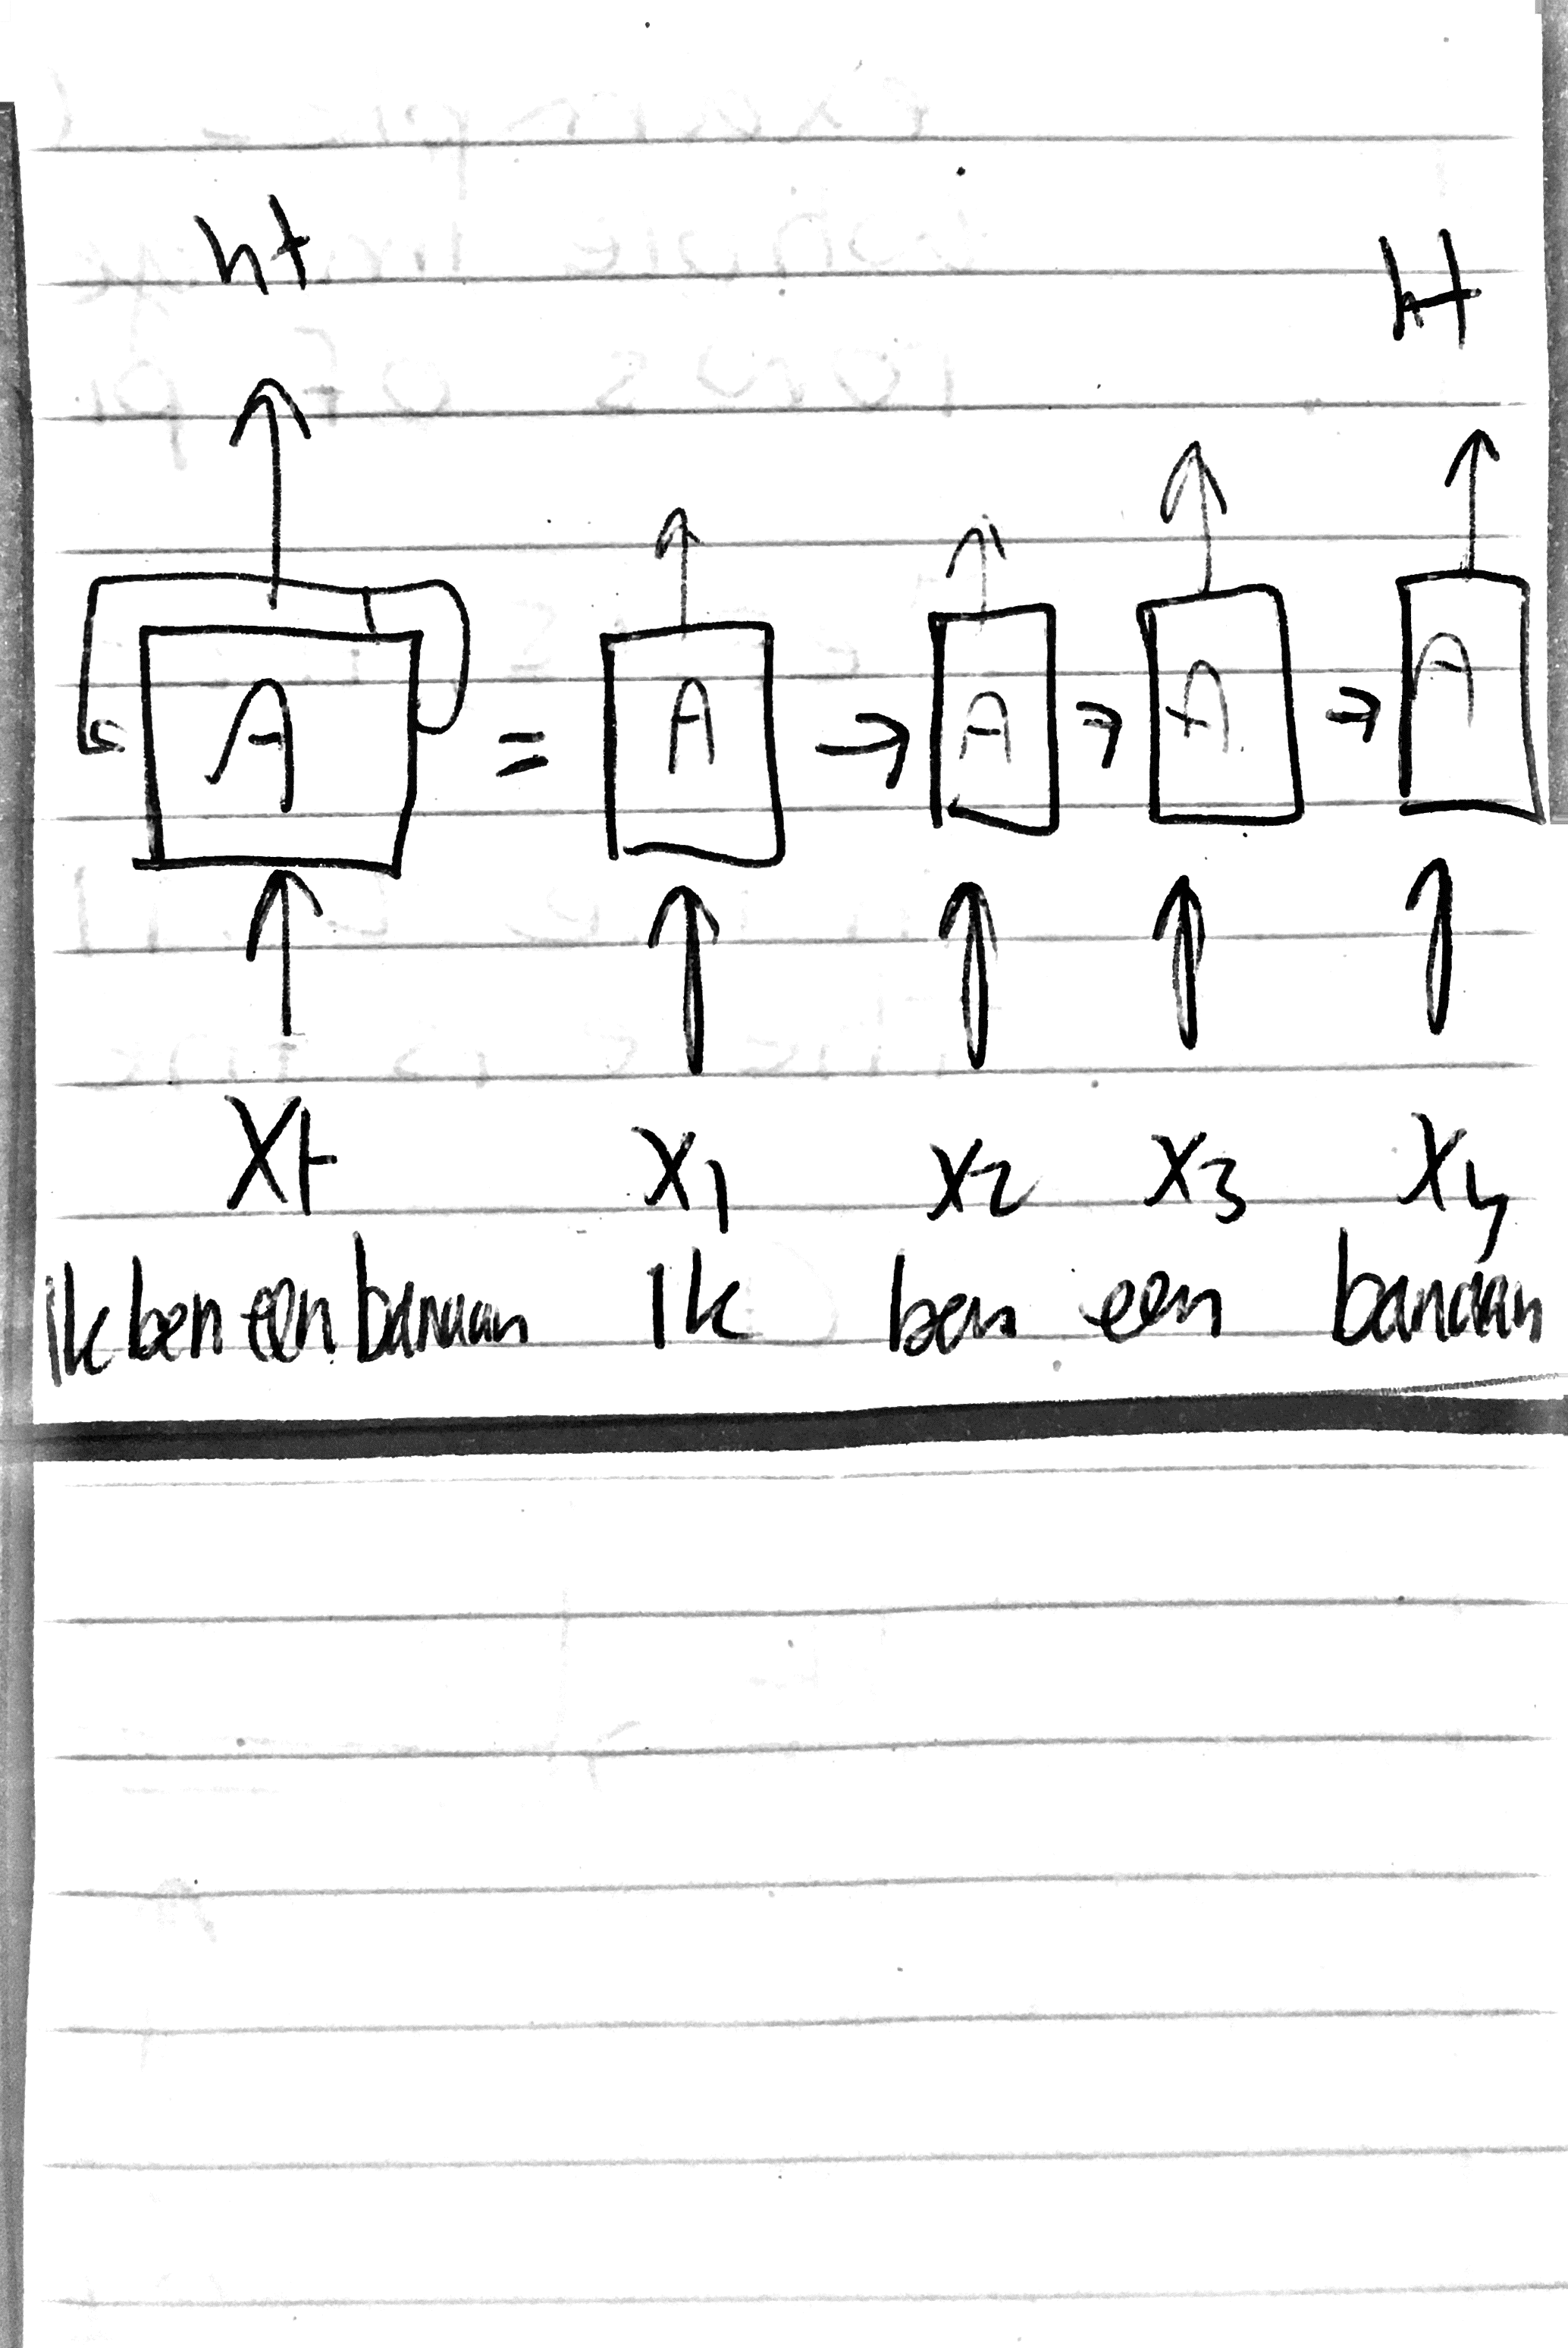 ht ht
A = A → A → A → A
Xt X1 X2 X3 X4
ik ben een banaan Ik ben een banaan